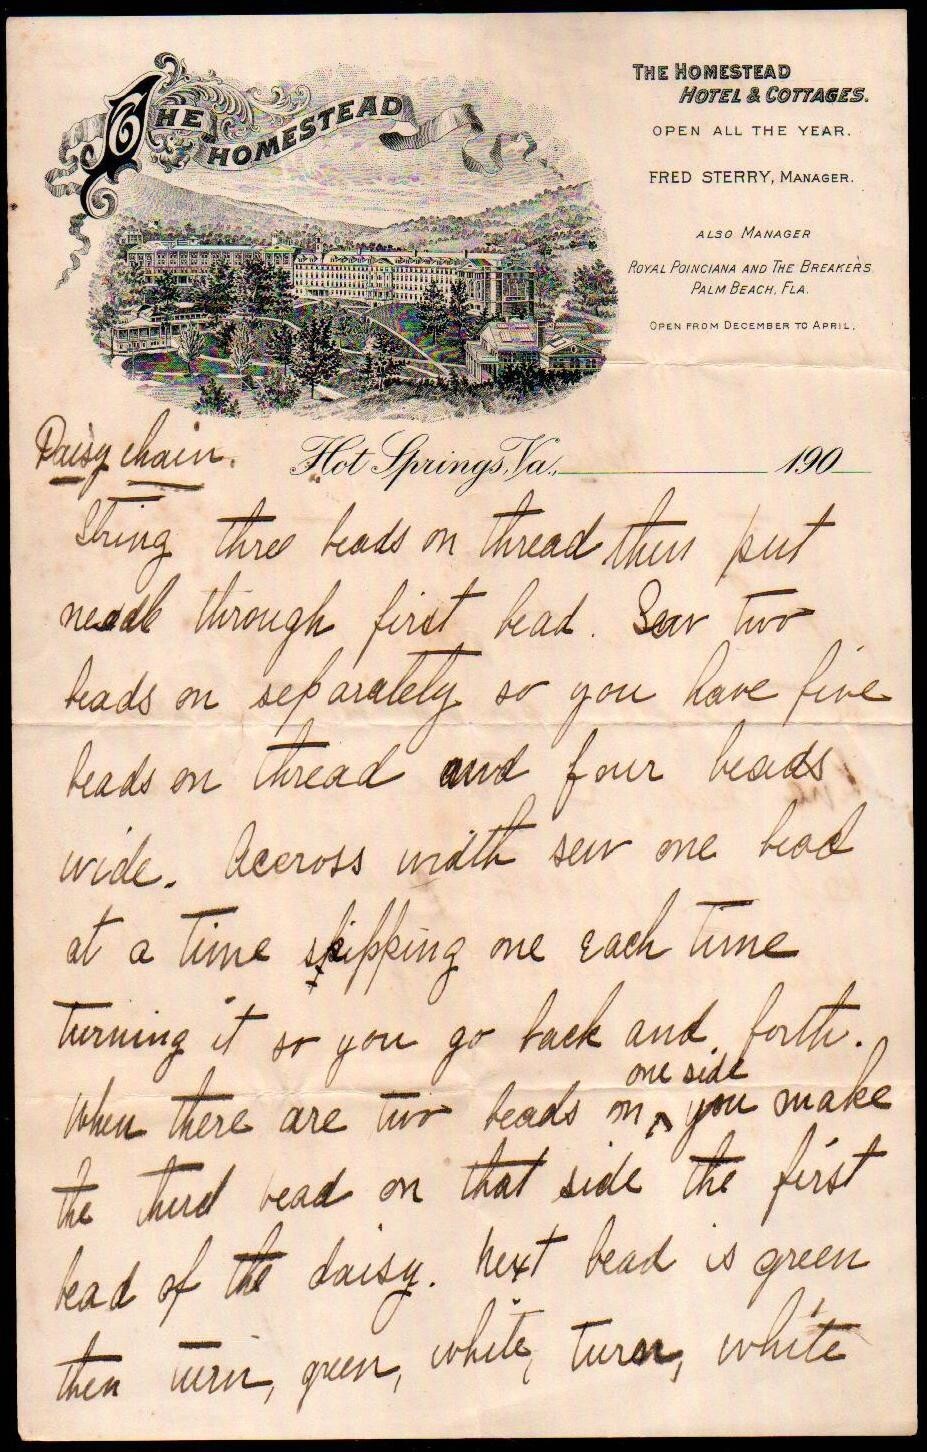 THE HOMESTEAD
THE HOMESTEAD
HOTEL & COTTAGES.
OPEN ALL THE YEAR.
FRED STERRY, MANAGER.
ALSO MANAGER
ROYAL POINCIANA AND THE BREAKERS
PALM BEACH, FLA.
OPEN FROM DECEMBER TO APRIL.
Daisy chain.
Hot Springs, Va., 190
String three beads on thread then put
needle through first bead. Sew two
beads on separately so you have five
beads on thread and four beads
wide. Accross width sew one bead
at a time skipping one each time
turning it so you go back and forth.
When there are two beads on ^ one side you make
the third bead on that side the first
bead of the daisy. Next bead is green
then turn, green, white, turn, white